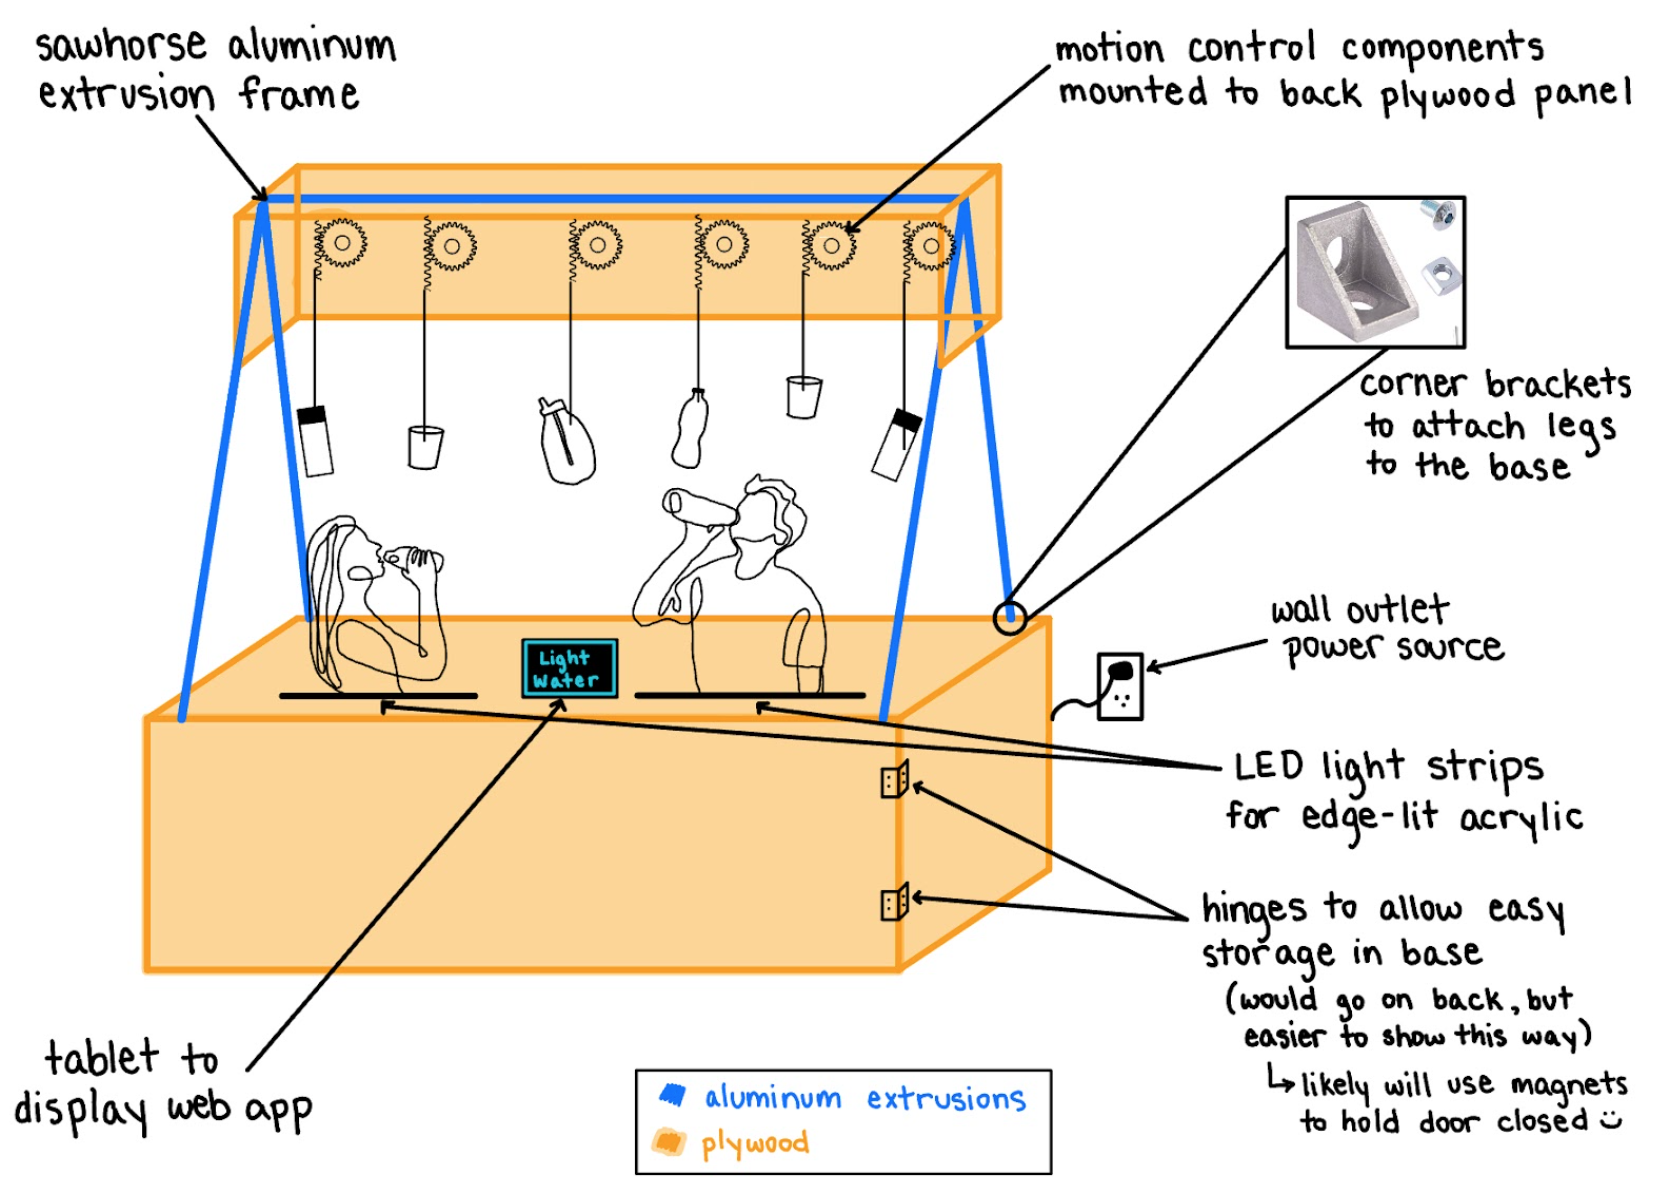 sawhorse aluminum
extrusion frame
motion control components
mounted to back plywood panel
corner brackets
to attach legs
to the base
wall outlet
power source
Light
Water
LED light strips
for edge-lit acrylic
hinges to allow easy
storage in base
(would go on back, but
easier to show this way)
↳ likely will use magnets
to hold door closed :)
tablet to
display web app
aluminum extrusions
plywood